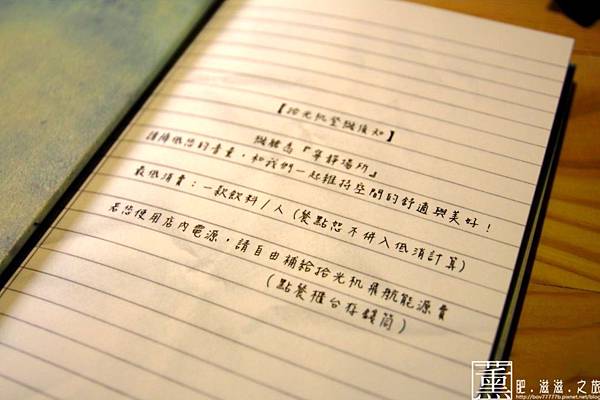 【拾光机登機須知】
機艙為『寧靜場所』
請降低您的音量，和我們一起維持空間的舒適與美好！
最低消費：一款飲料/人（餐點恕不併入低消計算）
若您使用店內電源，請自由補給拾光机飛航能源費
（點餐櫃台存錢筒）
薰 肥．滋滋．之旅
http://bov77777b.pixnet.net/blog